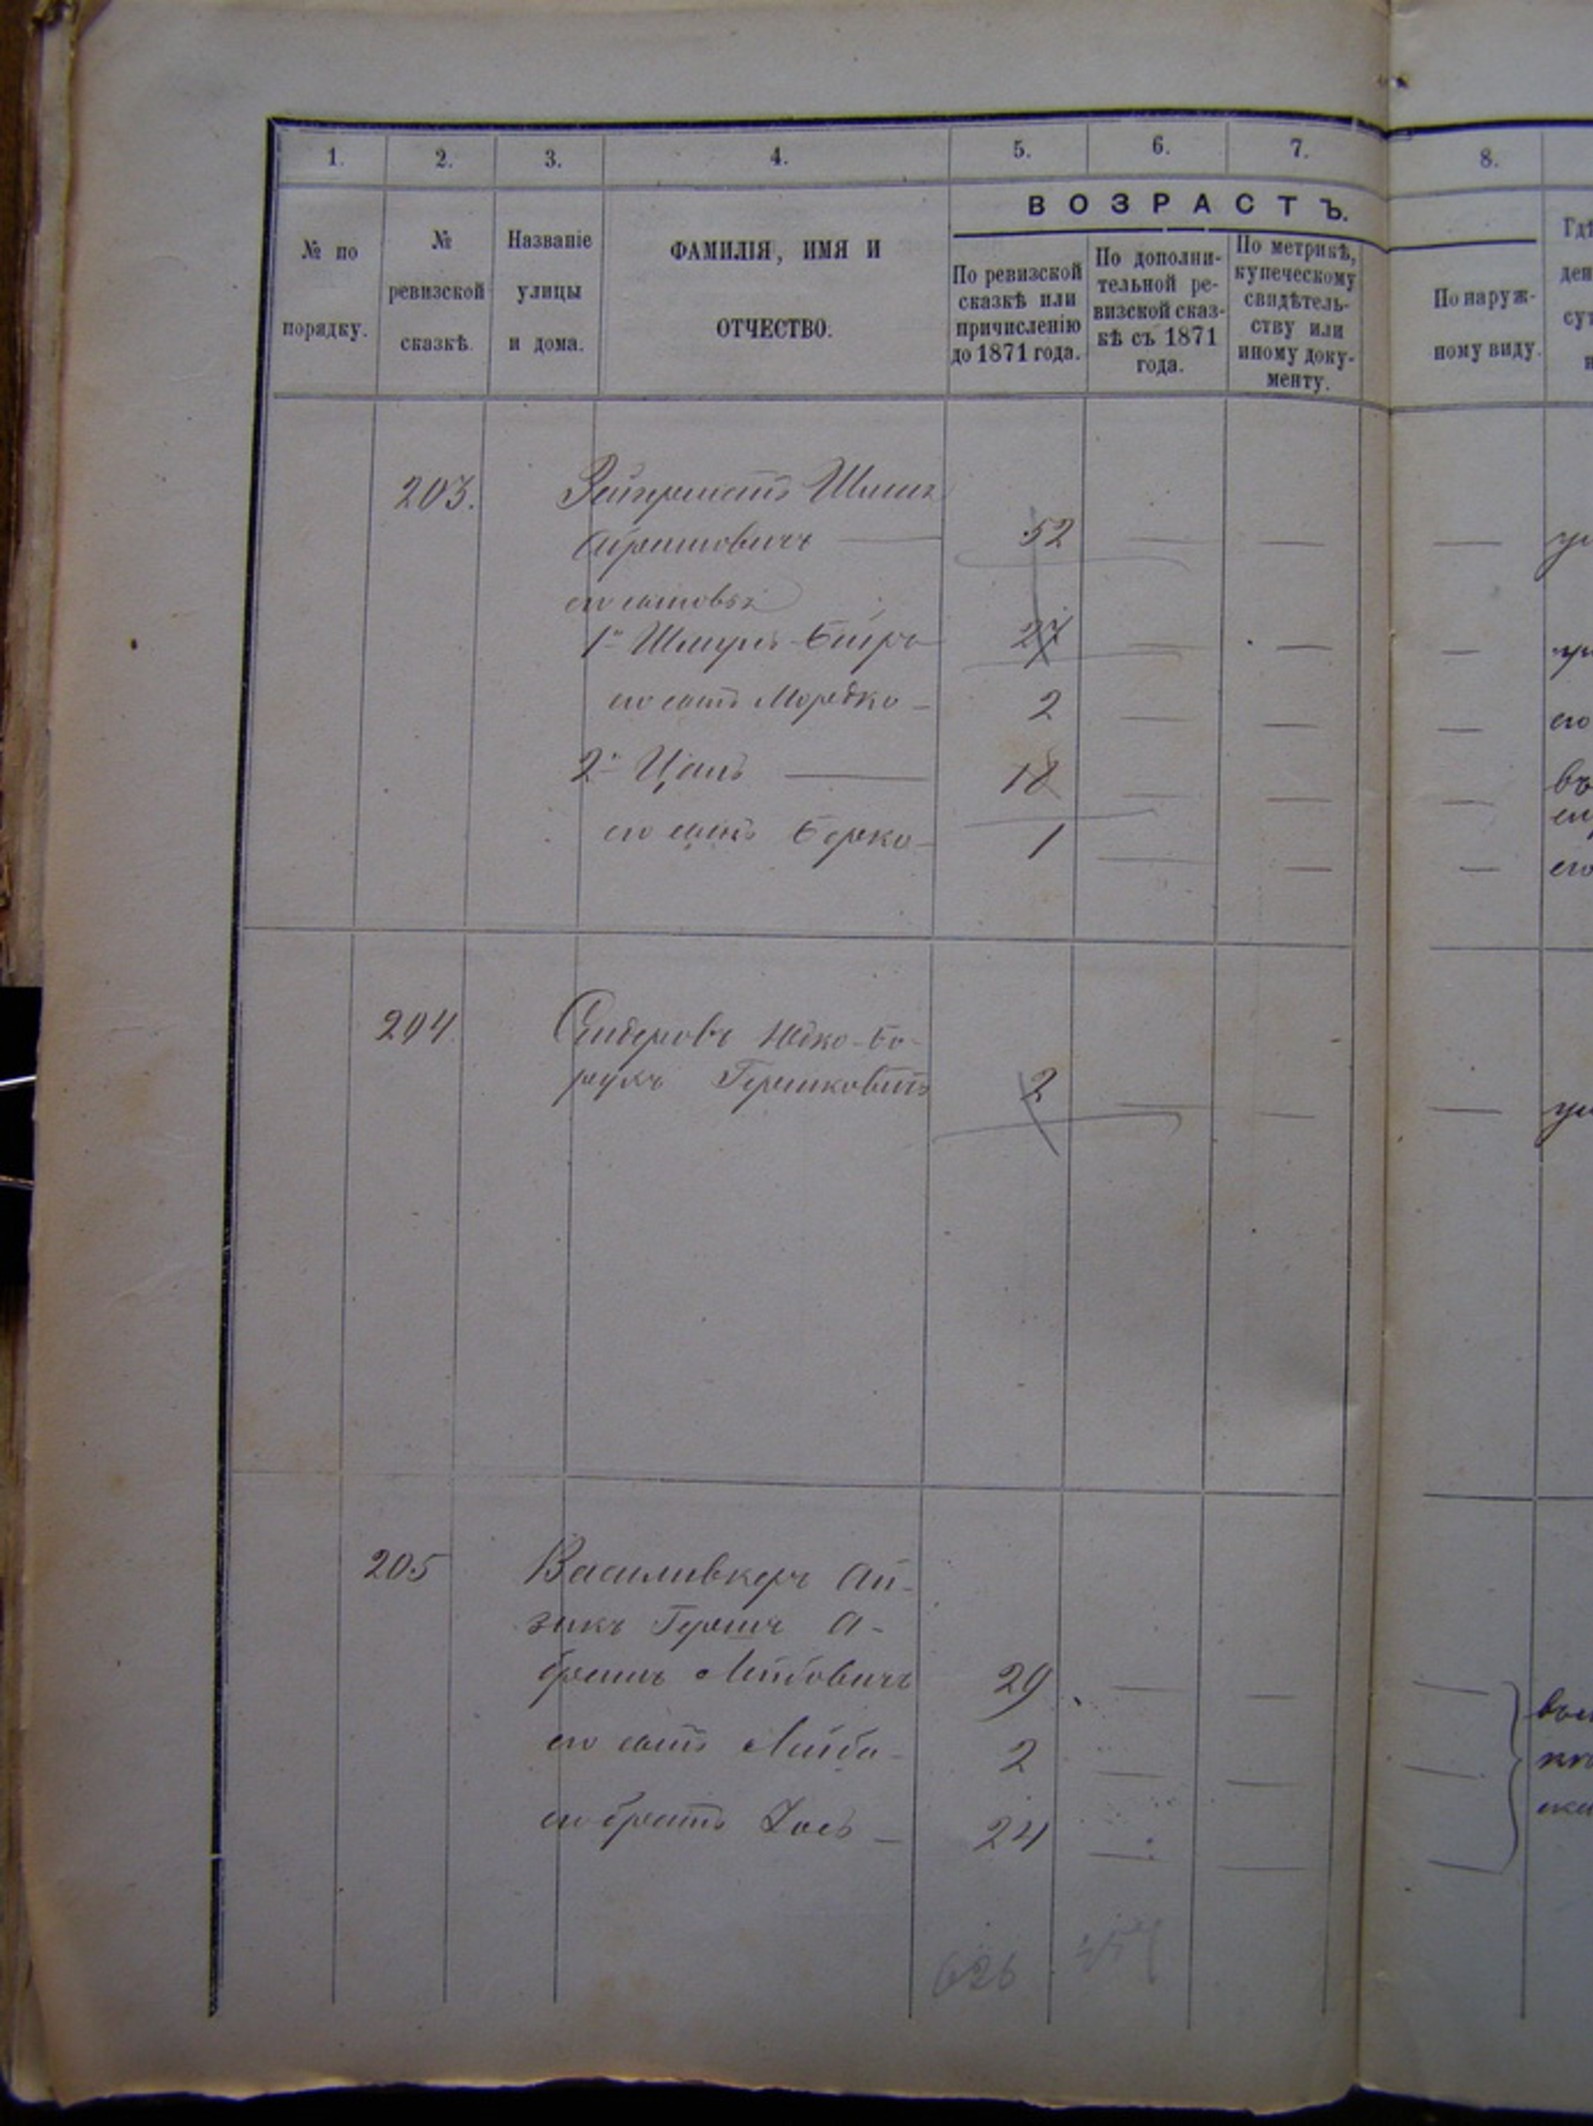 1. 2. 3. 4. 5. 6. 7. 8.
ВОЗРАСТЪ.
№ по порядку.
№ ревизской сказкѣ.
Названіе улицы и дома.
ФАМИЛІЯ, ИМЯ И ОТЧЕСТВО.
По ревизской сказкѣ или причисленію до 1871 года.
По дополнительной ревизской сказкѣ съ 1871 года.
По метрикѣ, купеческому свидѣтельству или иному документу.
По наружному виду.
203.
Абрамовичъ — 52 — — —
его сыновья
1й Шмуль 27 — — —
его сынъ Мордко — 2 — — — его
2й — 18 — — — въ
его сынъ Берко — 1 — — — его
204. Сидеровъ Юдко-Бо-
рухъ Гершковичъ 2 — — —
205 Василивкеръ Ай-
зикъ Гершъ А-
брамъ Лейбовичъ 29 — — —
его сынъ Лейба — 2 — — —
его братъ — 24 — — —
626